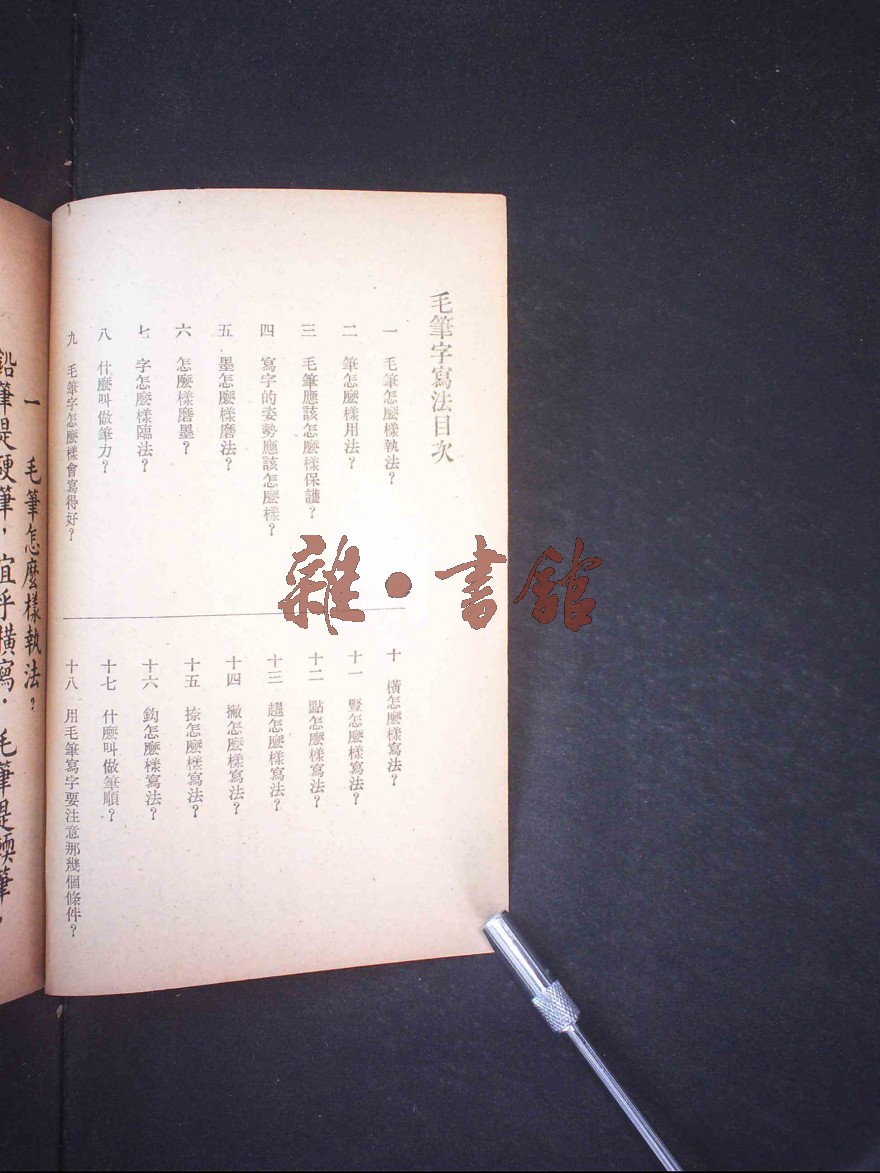 毛筆字寫法目次
一　毛筆怎麽樣執法？
二　筆怎麽樣用法？
三　毛筆應該怎麽樣保護？
四　寫字的姿勢應該怎麽樣？
五　墨怎麽樣磨法？
六　怎麽樣磨墨？
七　字怎麽樣臨法？
八　什麽叫做筆力？
九　毛筆字怎麽樣會寫得好？
十　橫怎麽樣寫法？
十一　豎怎麽樣寫法？
十二　點怎麽樣寫法？
十三　趯怎麽樣寫法？
十四　撇怎麽樣寫法？
十五　捺怎麽樣寫法？
十六　鈎怎麽樣寫法？
十七　什麽叫做筆順？
十八　用毛筆寫字要注意那幾個條件？
雜•書館
一　毛筆怎麽樣執法？
鉛筆是硬筆，宜乎橫寫．毛筆是輭筆，